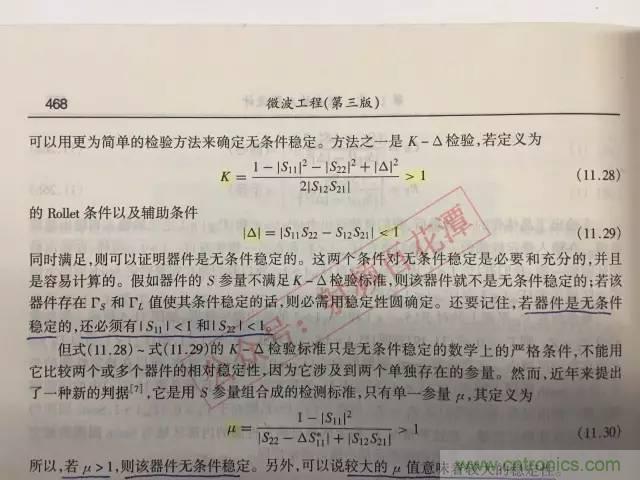 468
微波工程(第三版)
可以用更为简单的检验方法来确定无条件稳定。方法之一是 K-Δ检验,若定义为
K = (1-|S11|²-|S22|²+|Δ|²)/(2|S12S21|) > 1 (11.28)
的 Rollet 条件以及辅助条件
|Δ| = |S11S22 - S12S21| < 1 (11.29)
同时满足,则可以证明器件是无条件稳定的。这两个条件对无条件稳定是必要和充分的,并且
是容易计算的。假如器件的 S 参量不满足 K-Δ检验标准,则该器件就不是无条件稳定的;若该
器件存在 ΓS 和 ΓL 值使其条件稳定的话,则必需用稳定性圆确定。还要记住,若器件是无条件
稳定的,还必须有|S11|<1 和|S22|<1。
但式(11.28)~式(11.29)的 K-Δ检验标准只是无条件稳定的数学上的严格条件,不能用
它比较两个或多个器件的相对稳定性,因为它涉及到两个单独存在的参量。然而,近年来提出
了一种新的判据[7],它是用 S 参量组合成的检测标准,只有单一参量 μ,其定义为
μ = (1-|S11|²)/(|S22-ΔS*11|+|S12S21|) > 1 (11.30)
所以,若 μ>1,则该器件无条件稳定。另外,可以说较大的 μ 值意味着较大的稳定性。
公众号:射频百花潭
www.cntronics.com